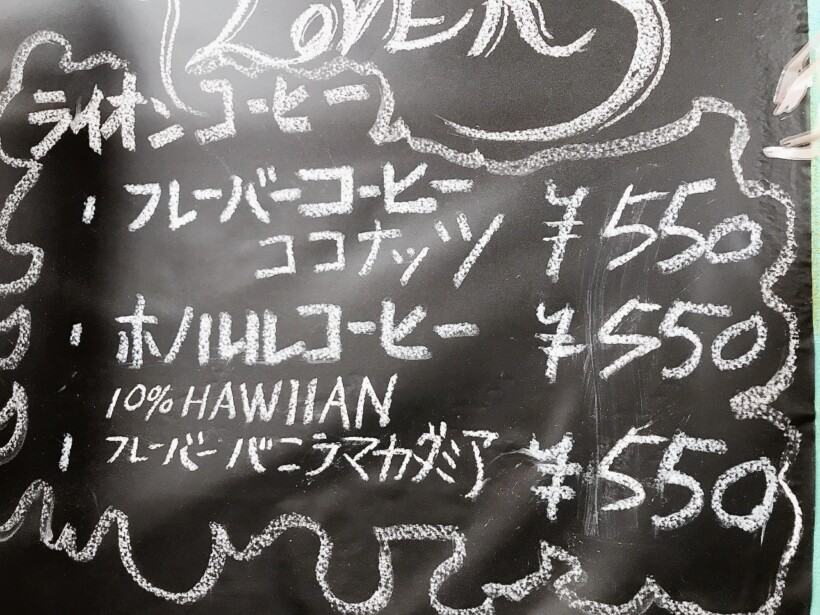 LOVER
ライオンコーヒー
・フレーバーコーヒー ¥550
ココナッツ
・ホノルルコーヒー ¥550
10% HAWIIAN
・フレーバーバニラマカダミア ¥550